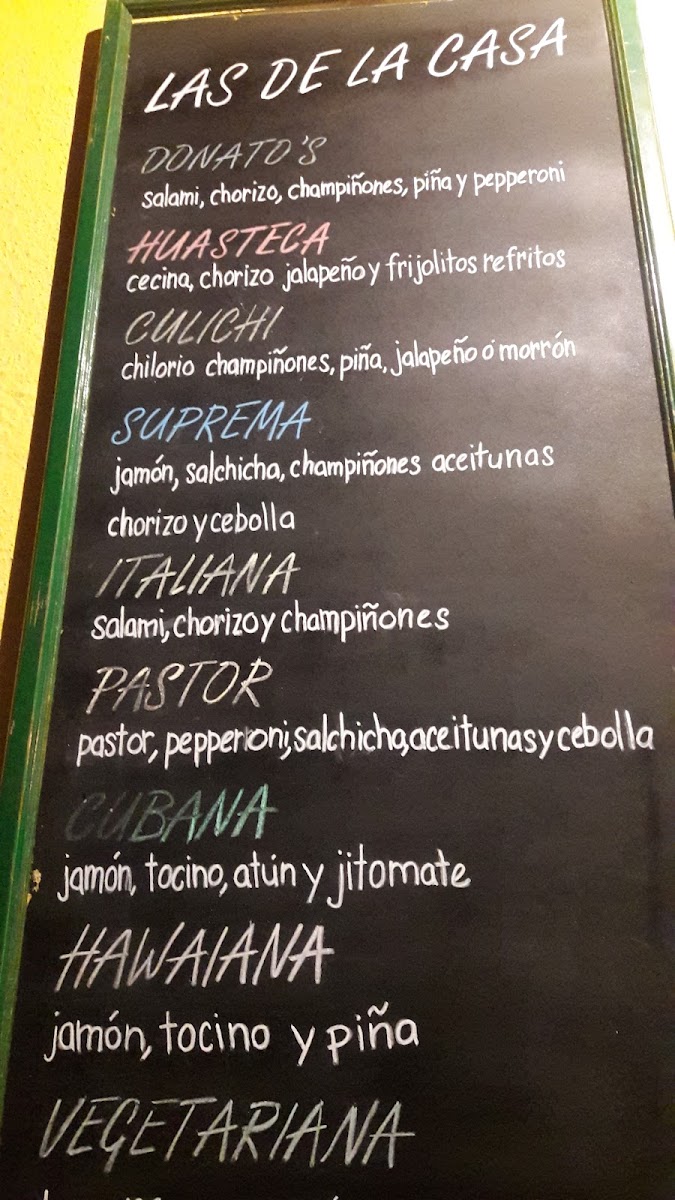 LAS DE LA CASA
DONATO'S
salami, chorizo, champiñones, piña y pepperoni
HUASTECA
cecina, chorizo jalapeño y frijolitos refritos
CULICHI
chilorio champiñones, piña, jalapeño o morrón
SUPREMA
jamón, salchicha, champiñones aceitunas
chorizo y cebolla
ITALIANA
salami, chorizo y champiñones
PASTOR
pastor, pepperoni, salchicha, aceitunas y cebolla
CUBANA
jamón, tocino, atún y jitomate
HAWAIANA
jamón, tocino y piña
VEGETARIANA